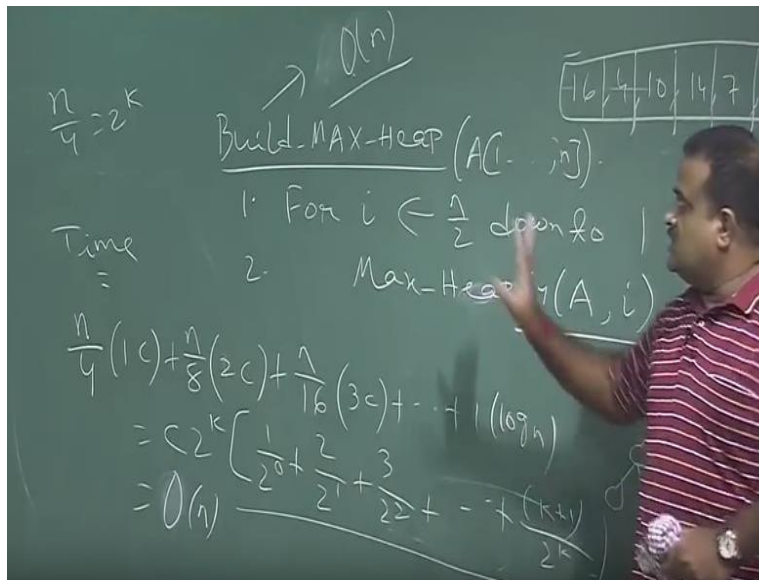 O(n)
n/4 = 2^k
16 | 4 | 10 | 14 | 7
Build-MAX-Heap (A[1 - - , n]).
1. For i ← n/2 down to 1
Time
=
2. Max-Heapify (A, i)
n/4 (1c) + n/8 (2c) + n/16 (3c) + -- + 1 (log n)
= c 2^k [ 1/2^0 + 2/2^1 + 3/2^2 + -- + (k+1)/2^k )
= O(n)